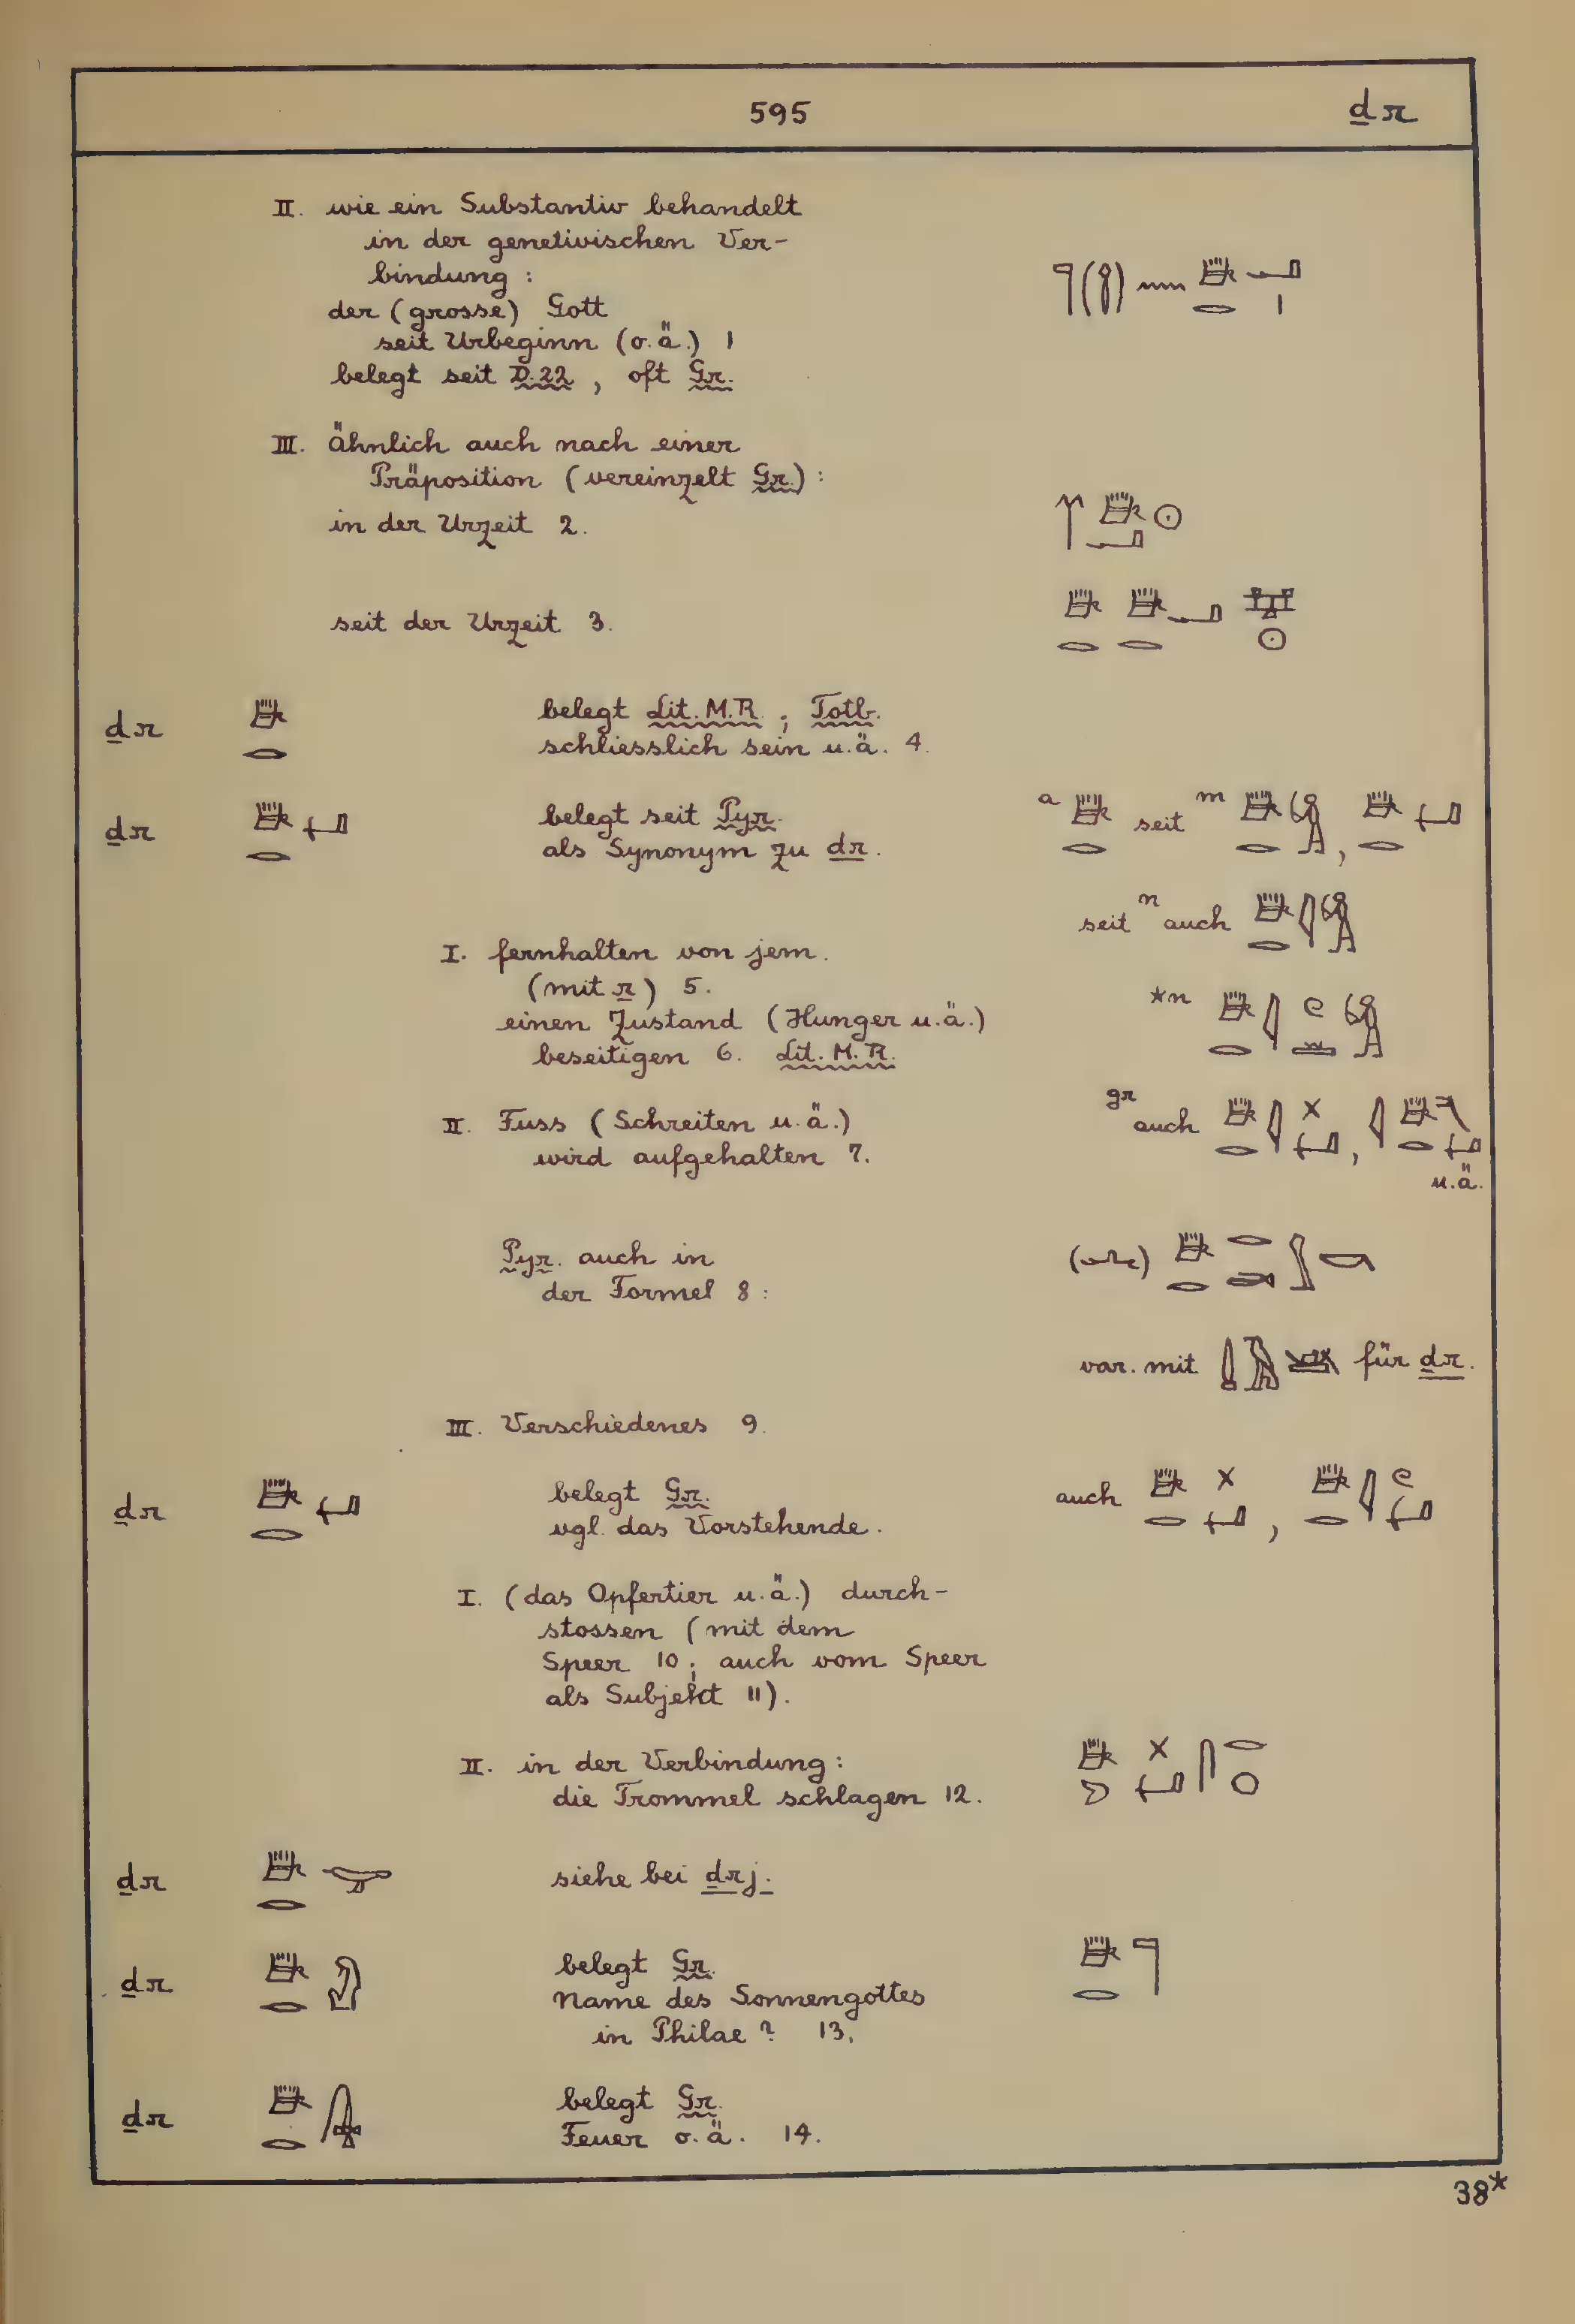 595 ḏr
II. wie ein Substantiv behandelt
in der genetivischen Ver-
bindung :
der (grosse) Gott
seit Urbeginn (o.ä.) 1
belegt seit D.22 , oft Gr.
III. ähnlich auch nach einer
Präposition (vereinzelt Gr.) :
in der Urzeit 2.
seit der Urzeit 3.
ḏr belegt Lit. M.R. ; Totb.
schliesslich sein u.ä. 4.
ḏr belegt seit Pyr. a seit m ,
als Synonym zu dr.
seit n auch
I. fernhalten von jem.
(mit r) 5. *n
einen Zustand (Hunger u.ä.)
beseitigen 6. Lit. M.R.
II. Fuss (Schreiten u.ä.) gr auch ,
wird aufgehalten 7. u.ä.
Pyr. auch in
der Formel 8 :
var. mit für ḏr.
III. Verschiedenes 9.
ḏr belegt Gr. auch ,
vgl. das Vorstehende.
I. (das Opfertier u.ä.) durch-
stossen (mit dem
Speer 10 ; auch vom Speer
als Subjekt 11).
II. in der Verbindung :
die Trommel schlagen 12.
ḏr siehe bei ḏrj.
ḏr belegt Gr.
Name des Sonnengottes
in Philae ? 13.
ḏr belegt Gr.
Feuer o.ä. 14.
38*